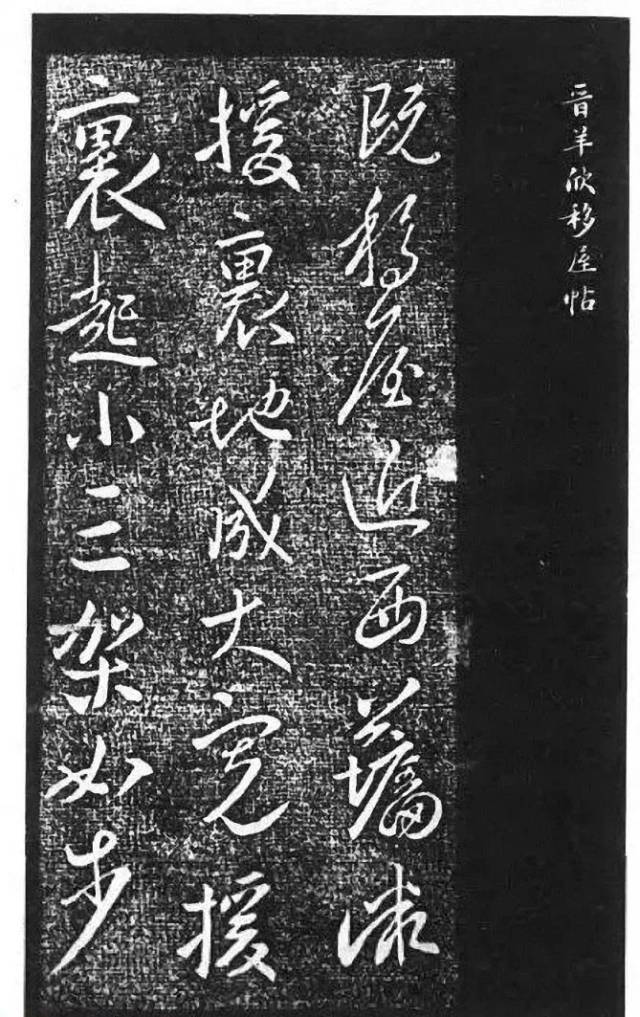 晋羊欣移屋帖
既移屋近西墻
援裏地成大寬援
裏起小三架如步